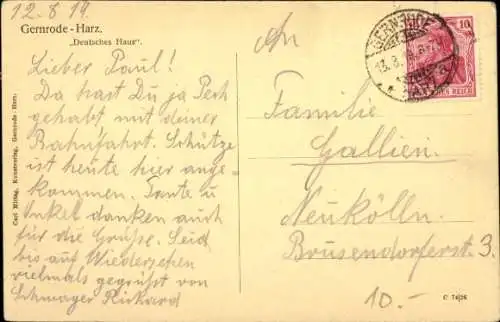 12.8.19.
Gernrode-Harz.
„Deutsches Haus“.
Lieber Paul!
Da hast Du ja Pech
gehabt mit deiner
Bahnfahrt. Schütze
ist heute hier ange-
kommen. Tante u
Onkel danken auch
für die Grüße. Seid
bis auf Wiedersehen
vielmals gegrüßt von
Schwager Richard
Carl Mittag, Kunstverlag, Gernrode-Harz.
An
Familie
Gallien.
Neukölln.
Brusendorferstr. 3.
10.-
GERNRODE
13.8.
10
DEUTSCHES REICH